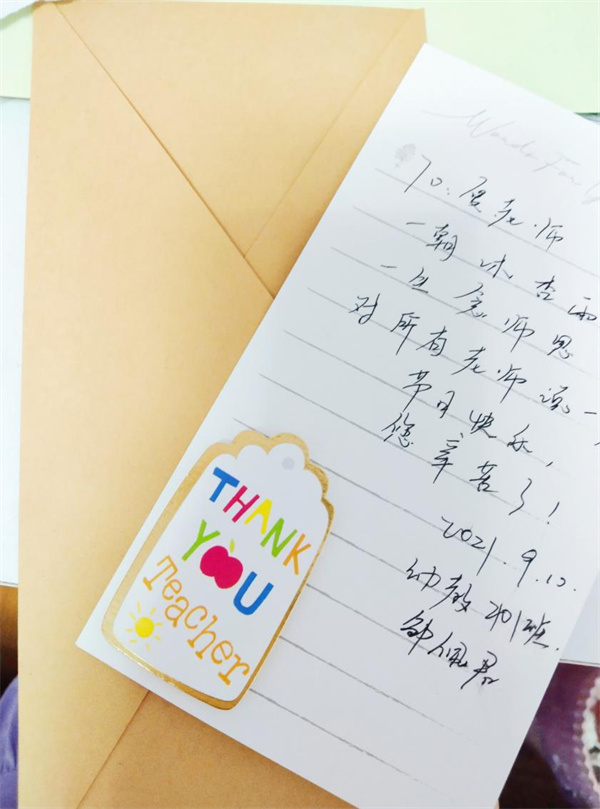 To. 老师
一朝沐杏雨
一生念师恩
对所有老师说一
节日快乐,
您辛苦了!
2021.9.10.
幼教201班.
THANK
YOU
Teacher